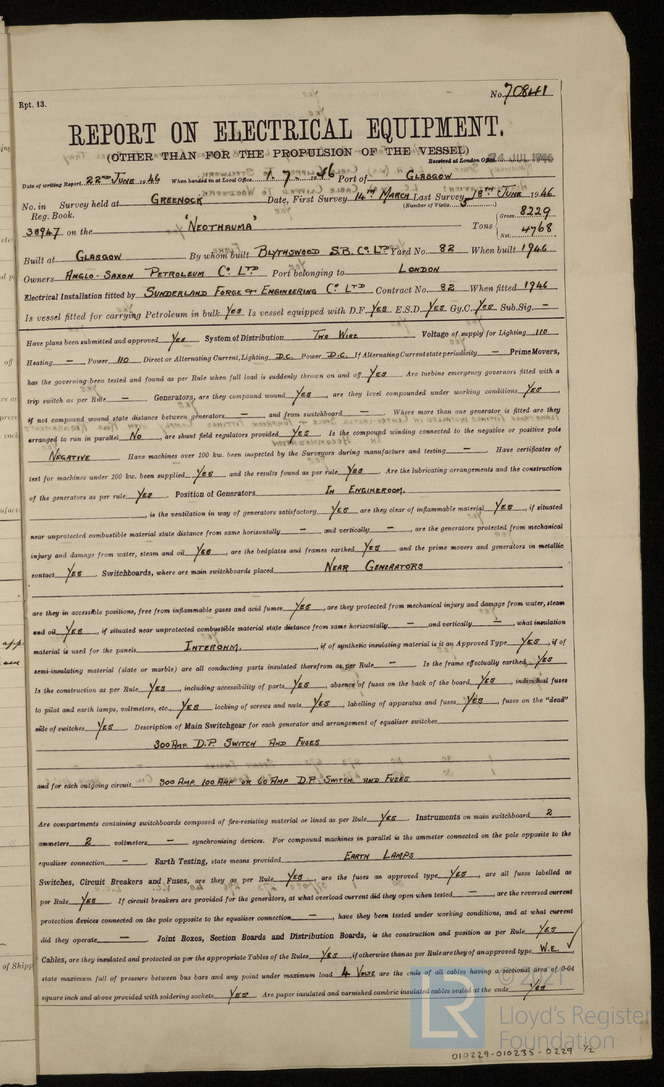 Rpt. 13.
No. 70841
REPORT ON ELECTRICAL EQUIPMENT.
(OTHER THAN FOR THE PROPULSION OF THE VESSEL)
Received at London Office 24 JUL 1946
Date of writing Report 22nd June 1946 When handed in at Local Office 1. 7 1946 Port of Glasgow
No. in Survey held at Greenock Date, First Survey 14th March Last Survey 18th June 1946
Reg. Book. (Number of Visits 5)
38947 on the 'Neothauma' Tons Gross 8229
Net 4768
Built at Glasgow By whom built Blythswood S.B. Co Ltd Yard No. 82 When built 1946
Owners Anglo-Saxon Petroleum Co Ltd Port belonging to London
Electrical Installation fitted by Sunderland Forge & Engineering Co Ltd Contract No. 82 When fitted 1946
Is vessel fitted for carrying Petroleum in bulk Yes Is vessel equipped with D.F. Yes E.S.D Yes Gy.C. Yes Sub.Sig. —
Have plans been submitted and approved Yes System of Distribution Two Wire Voltage of supply for Lighting 110
Heating — Power 110 Direct or Alternating Current, Lighting D.C. Power D.C. If Alternating Current state periodicity — Prime Movers,
has the governing been tested and found as per Rule when full load is suddenly thrown on and off Yes Are turbine emergency governors fitted with a
trip switch as per Rule — Generators, are they compound wound Yes, are they level compounded under working conditions Yes,
if not compound wound state distance between generators — and from switchboard — Where more than one generator is fitted are they
arranged to run in parallel No, are shunt field regulators provided Yes Is the compound winding connected to the negative or positive pole
Negative Have machines over 100 kw. been inspected by the Surveyors during manufacture and testing — Have certificates of
test for machines under 100 kw. been supplied Yes and the results found as per rule Yes Are the lubricating arrangements and the construction
of the generators as per rule Yes Position of Generators In Engineroom.
, is the ventilation in way of generators satisfactory Yes are they clear of inflammable material Yes, if situated
near unprotected combustible material state distance from same horizontally — and vertically —, are the generators protected from mechanical
injury and damage from water, steam and oil Yes, are the bedplates and frames earthed Yes and the prime movers and generators in metallic
contact Yes Switchboards, where are main switchboards placed Near Generators
are they in accessible positions, free from inflammable gases and acid fumes Yes, are they protected from mechanical injury and damage from water, steam
and oil Yes, if situated near unprotected combustible material state distance from same horizontally — and vertically —, what insulation
material is used for the panels Interohm., if of synthetic insulating material is it an Approved Type Yes, if of
semi-insulating material (slate or marble) are all conducting parts insulated therefrom as per Rule — Is the frame effectually earthed Yes
Is the construction as per Rule Yes, including accessibility of parts Yes, absence of fuses on the back of the board Yes, individual fuses
to pilot and earth lamps, voltmeters, etc., Yes locking of screws and nuts Yes, labelling of apparatus and fuses Yes, fuses on the "dead"
side of switches Yes Description of Main Switchgear for each generator and arrangement of equaliser switches
300 Amp D.P. Switch And Fuses
and for each outgoing circuit 300 Amp 100 Amp or 60 Amp D.P. Switch and Fuses
Are compartments containing switchboards composed of fire-resisting material or lined as per Rule Yes Instruments on main switchboard 2
ammeters 2 voltmeters — synchronising devices. For compound machines in parallel is the ammeter connected on the pole opposite to the
equaliser connection — Earth Testing, state means provided Earth Lamps
Switches, Circuit Breakers and Fuses, are they as per Rule Yes, are the fuses an approved type Yes, are all fuses labelled as
per Rule Yes If circuit breakers are provided for the generators, at what overload current did they open when tested —, are the reversed current
protection devices connected on the pole opposite to the equaliser connection —, have they been tested under working conditions, and at what current
did they operate — Joint Boxes, Section Boards and Distribution Boards, is the construction and position as per Rule Yes
Cables, are they insulated and protected as per the appropriate Tables of the Rules Yes, if otherwise than as per Rule are they of an approved type W.E.,
state maximum fall of pressure between bus bars and any point under maximum load 4 Volts are the ends of all cables having a sectional area of 0·04
square inch and above provided with soldering sockets Yes Are paper insulated and varnished cambric insulated cables sealed at the ends Yes
© 2021
LR Lloyd's Register
Foundation
010229-010235-0229 1/2